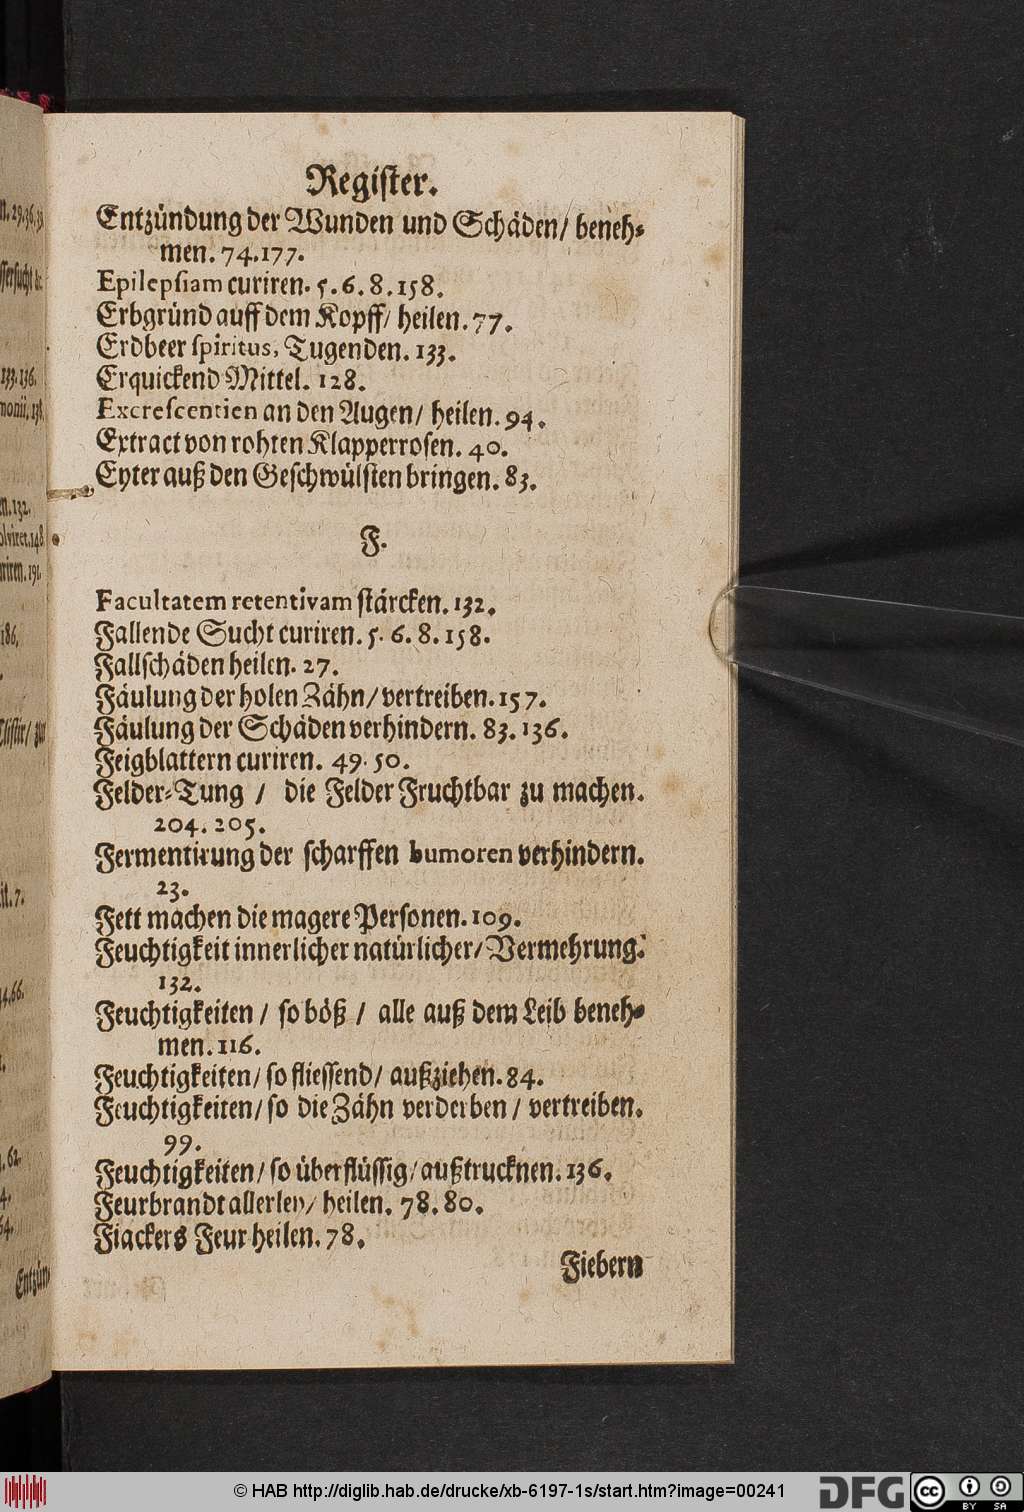 Register.
Entzündung der Wunden und Schäden/ beneh-
men. 74.177.
Epilepsiam curiren. 5.6.8.158.
Erbgründ auff dem Kopff/ heilen. 77.
Erdbeer spiritus, Tugenden. 133.
Erquickend Mittel. 128.
Excrescentien an den Augen/ heilen. 94.
Extract von rohten Klapperrosen. 40.
Eyter auß den Geschwülsten bringen. 83.
F.
Facultatem retentivam stärcken. 132.
Fallende Sucht curiren. 5.6.8.158.
Fallschäden heilen. 27.
Fäulung der holen Zähn/ vertreiben. 157.
Fäulung der Schäden verhindern. 83.136.
Feigblattern curiren. 49.50.
Felder-Tung / die Felder Fruchtbar zu machen.
204.205.
Fermentirung der scharffen humoren verhindern.
23.
Fett machen die magere Personen. 109.
Feuchtigkeit innerlicher natürlicher/ Vermehrung.
132.
Feuchtigkeiten / so böß / alle auß dem Leib beneh-
men. 116.
Feuchtigkeiten/ so fliessend/ außziehen. 84.
Feuchtigkeiten/ so die Zähn verderben / vertreiben.
99.
Feuchtigkeiten/ so überflüssig/ außtrucknen. 136.
Feurbrandt allerley/ heilen. 78.80.
Fiackers Feur heilen. 78.
Fiebern
© HAB http://diglib.hab.de/drucke/xb-6197-1s/start.htm?image=00241
DFG
cc
BY SA